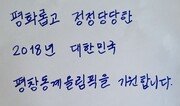 평화롭고 정정당당한
2018년 대한민국
평창동계올림픽을 기원합니다.